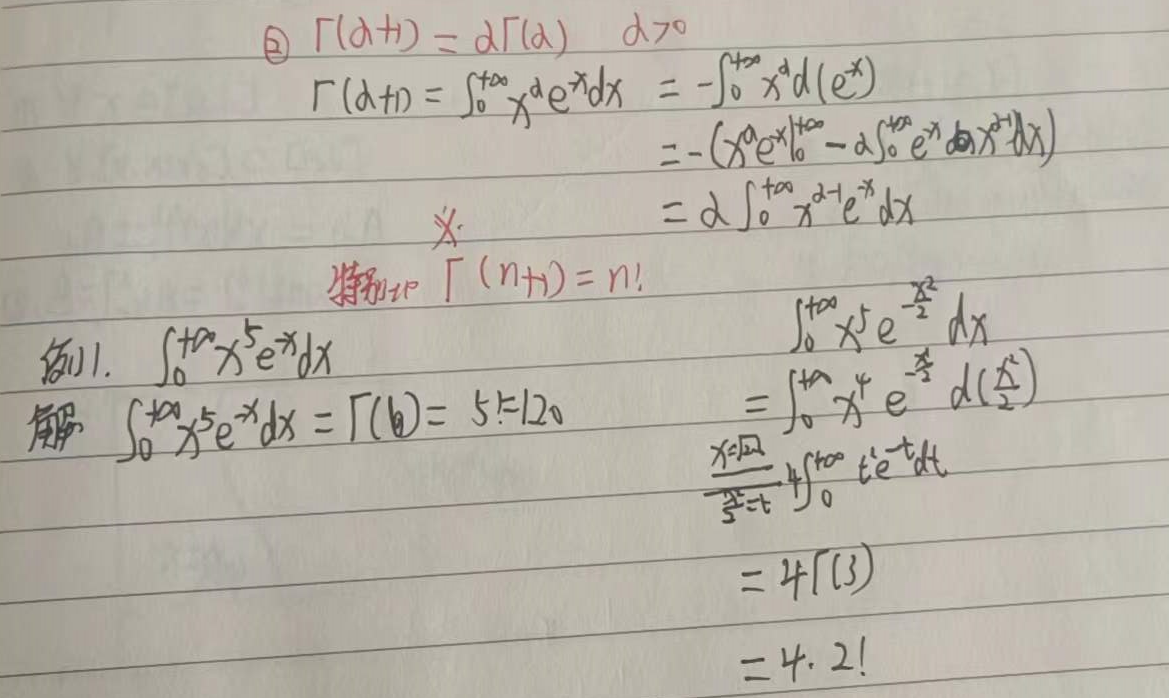 ② Γ(α+1) = αΓ(α) α>0
Γ(α+1) = ∫₀^{+∞} x^α e^{-x} dx = -∫₀^{+∞} x^α d(e^{-x})
= -(x^α e^{-x}|₀^{+∞} - α∫₀^{+∞} e^{-x} x^{α-1} dx)
= α ∫₀^{+∞} x^{α-1} e^{-x} dx
※
特别地 Γ(n+1) = n!
例1. ∫₀^{+∞} x^5 e^{-x} dx
解 ∫₀^{+∞} x^5 e^{-x} dx = Γ(6) = 5! = 120
∫₀^{+∞} x^5 e^{-x²/2} dx
= ∫₀^{+∞} x^4 e^{-x²/2} d(x²/2)
x²/2=t 4∫₀^{+∞} t² e^{-t} dt
= 4Γ(3)
= 4·2!